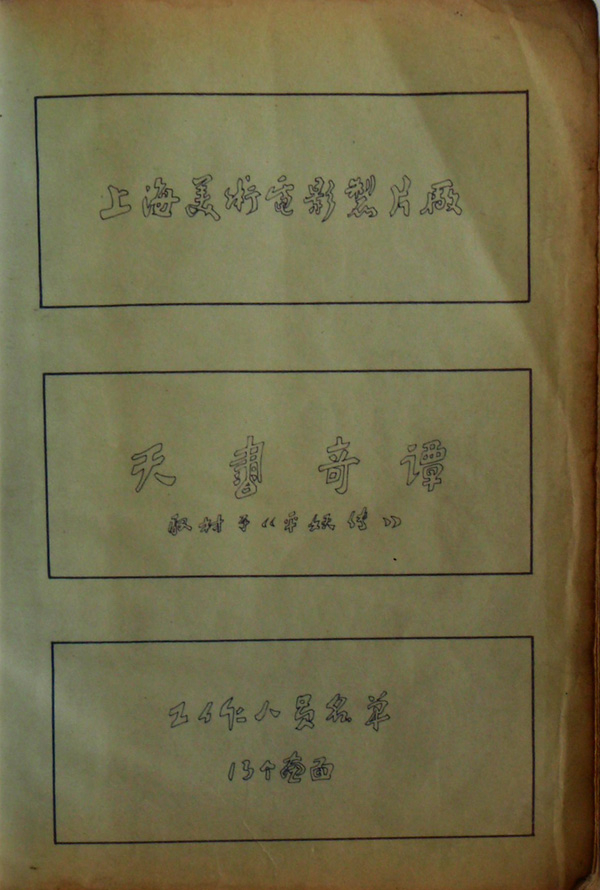 上海美術電影製片廠
天書奇谭
取材于《平妖传》
工作人员名单
13个画面